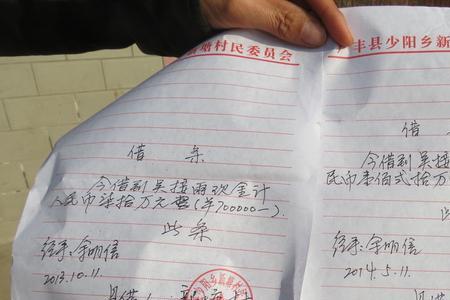 塘村民委员会
借 条
今借到吴接雨现金计
人民币柒拾万元整(¥700000一).
此条
经手:余明信
2013.10.11.
具借
丰县少阳乡新
借
今借到吴接
民币壹佰弍拾万
经手:余明信
2014.5.11.
具借